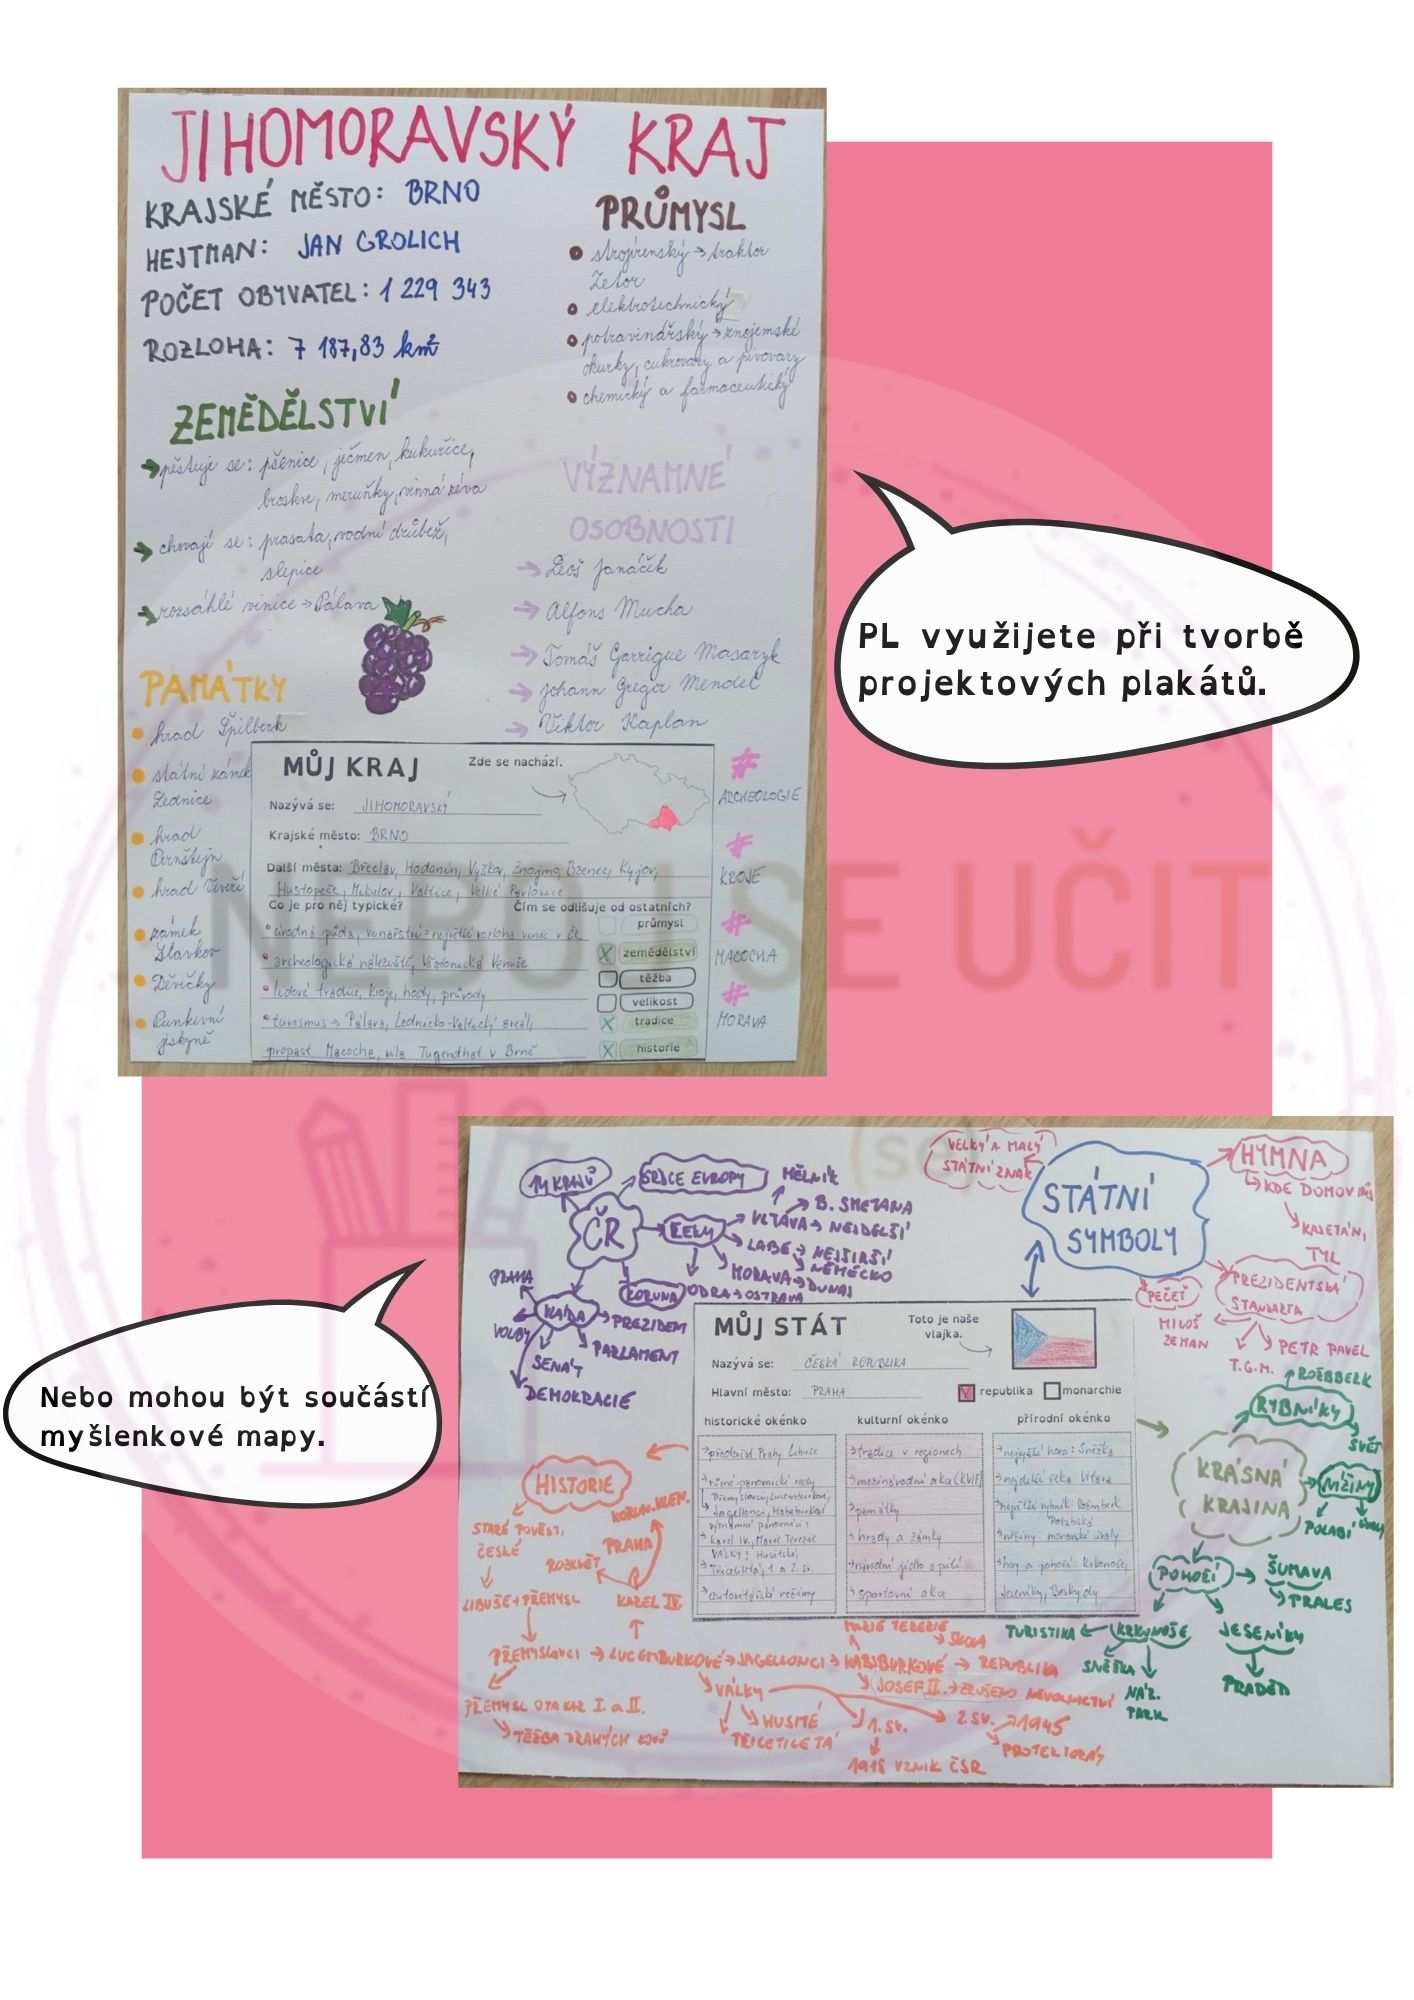 JIHOMORAVSKÝ KRAJ
KRAJSKÉ MĚSTO: BRNO
HEJTMAN: JAN GROLICH
POČET OBYVATEL: 1 229 343
ROZLOHA: 7 187,83 km²
PRŮMYSL
strojírenský → traktor
Zetor
elektrotechnický
potravinářský → znojemské
okurky, cukrovary a pivovary
chemický a farmaceutický
ZEMĚDĚLSTVÍ
pěstuje se: pšenice, ječmen, kukuřice,
broskve, meruňky, vinná réva
chovají se: prasata, vodní drůbež,
slepice
rozsáhlé vinice → Pálava
VÝZNAMNÉ
OSOBNOSTI
→ Leoš Janáček
→ Alfons Mucha
→ Tomáš Garrigue Masaryk
→ Johann Gregor Mendel
→ Viktor Kaplan
PAMÁTKY
hrad Špilberk
státní zámek
Lednice
hrad
Pernštejn
hrad Veveří
zámek
Slavkov
Děvičky
Punkevní
jeskyně
MŮJ KRAJ
Zde se nachází.
Nazývá se: JIHOMORAVSKÝ
Krajské město: BRNO
Další města: Břeclav, Hodonín, Vyškov, Znojmo, Bzenec, Kyjov,
Hustopeče, Mikulov, Valtice, Velké Pavlovice
Co je pro něj typické?
Čím se odlišuje od ostatních?
úrodná půda, vinařství = největší rozloha vinic v ČR
archeologická naleziště, Věstonická Venuše
lidové tradice, kroje, hody, průvody
turismus → Pálava, Lednicko-Valtický areál,
propast Macocha, vila Tugendhat v Brně
průmysl
zemědělství
těžba
velikost
tradice
historie
#
ARCHEOLOGIE
#
KROJE
#
MACOCHA
#
MORAVA
PL využijete při tvorbě
projektových plakátů.
NEBOJ SE UČIT
(se)
Nebo mohou být součástí
myšlenkové mapy.
14 KRAJŮ
SRDCE EVROPY
ČR
ŘEKY
MĚLNÍK
B. SMETANA
VLTAVA → NEJDELŠÍ
LABE → NEJŠIRŠÍ
NĚMECKO
MORAVA → DUNAJ
ODRA → OSTRAVA
KORUNA
PRAHA
VLÁDA
VOLBY
PREZIDENT
PARLAMENT
SENÁT
DEMOKRACIE
VELKÝ A MALÝ
STÁTNÍ ZNAK
STÁTNÍ
SYMBOLY
HYMNA
KDE DOMOV MŮJ
KAJETÁN,
TYL
PEČEŤ
PREZIDENTSKÁ
STANDARTA
MILOŠ
ZEMAN
PETR PAVEL
T.G.M.
MŮJ STÁT
Toto je naše
vlajka.
Nazývá se: ČESKÁ REPUBLIKA
Hlavní město: PRAHA
republika
monarchie
historické okénko
kulturní okénko
přírodní okénko
různé panovnické rody
Přemyslovci, Lucemburkové,
Jagellonci, Habsburkové
významní panovníci:
Karel IV., Marie Terezie
VÁLKY: Husitské,
Třicetiletá, 1. a 2. sv.
autoritářské režimy
tradice v regionech
mezinárodní akce (KVIFF)
památky
hrady a zámky
národní jídlo a pití
sportovní akce
nejvyšší hora: Sněžka
nejdelší řeka: Vltava
největší rybník: Rožmberk
Polabská
nížiny: moravské úvaly
hory a pohoří: Krkonoše,
Jeseníky, Beskydy
ROŽBERK
RYBNÍKY
SVĚT
KRÁSNÁ
KRAJINA
NÍŽINY
POLABÍ
ÚVALY
POHOŘÍ
ŠUMAVA
PRALES
TURISTIKA
KRKONOŠE
JESENÍKY
SNĚŽKA
NÁR.
PARK
PRADĚD
HISTORIE
KORUN. KLEN.
STARÉ POVĚSTI
ČESKÉ
PRAHA
ROZKVĚT
LIBUŠE + PŘEMYSL
KAREL IV.
MARIE TEREZIE
ŠKOLA
PŘEMYSLOVCI → LUCEMBURKOVÉ → JAGELLONCI → HABSBURKOVÉ → REPUBLIKA
JOSEF II. → ZRUŠENO NEVOLNICTVÍ
PŘEMYSL OTAKAR I. a II.
TĚŽBA DRAHÝCH KOVŮ
VÁLKY
HUSITSKÉ
TŘICETILETÁ
1. SV.
2. SV. → 1945
PROTEKTORÁT
1918 VZNIK ČSR